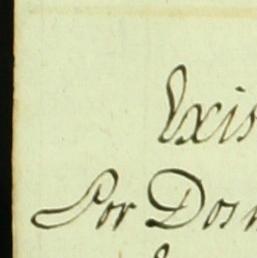 Exis
Por Dos